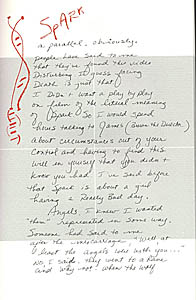 SpARK
a parallel, obviously.
people have said to me
that they've found the video
Disturbing I guess facing
Death is just that
I Didn't want a play by play
on film of the literal meaning
of Spark So I would spend
hours talking to James (Brown the Director)
about circumstances out of your
control and having to find this
will in yourself that you didn't
know you had I've said before
that Spark is about a girl
having a Really Bad day.
Angels I knew I wanted
them represented in some way.
Someone had said to me
after the miscarriage "Well at
least the angels were with you..."
No, I said. they went to a Rave
and why not when the